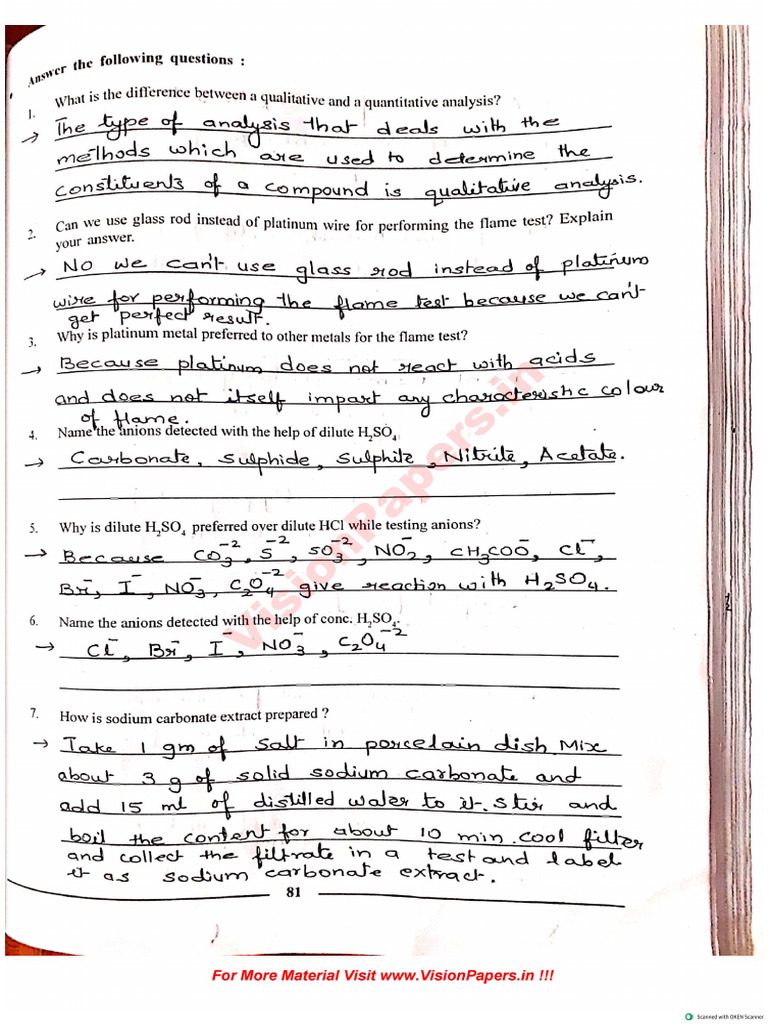 Answer the following questions :
1. What is the difference between a qualitative and a quantitative analysis?
→ The type of analysis that deals with the
methods which are used to determine the
constituents of a compound is qualitative analysis.
2. Can we use glass rod instead of platinum wire for performing the flame test? Explain
your answer.
→ No we can't use glass rod instead of platinum
wire for performing the flame test because we can't
get perfect result.
3. Why is platinum metal preferred to other metals for the flame test?
→ Because platinum does not react with acids
and does not itself impart any characteristic colour
of flame.
4. Name the anions detected with the help of dilute H₂SO₄
→ Carbonate, Sulphide, Sulphite, Nitrite, Acetate.
5. Why is dilute H₂SO₄ preferred over dilute HCl while testing anions?
→ Because CO₃⁻², S⁻², SO₃⁻², NO₂⁻, CH₃COO⁻, Cl⁻,
Br⁻, I⁻, NO₃⁻, C₂O₄⁻² give reaction with H₂SO₄.
6. Name the anions detected with the help of conc. H₂SO₄.
→ Cl⁻, Br⁻, I⁻, NO₃⁻, C₂O₄⁻²
7. How is sodium carbonate extract prepared ?
→ Take 1 gm of salt in porcelain dish Mix
about 3 g of solid sodium carbonate and
add 15 ml of distilled water to it. Stir and
boil the content for about 10 min. cool filter
and collect the filtrate in a test and label
it as sodium carbonate extract.
81
VisionPapers.in
For More Material Visit www.VisionPapers.in !!!
Scanned with OKEN Scanner